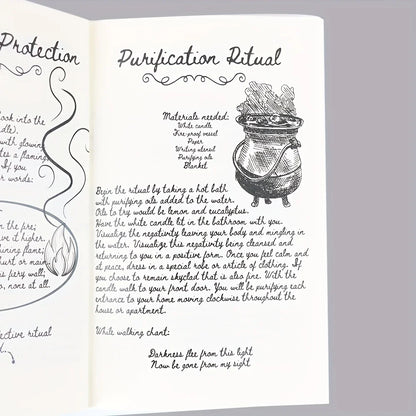 Protection
look into the
candle).
with glowing
tes a flaming
If you
r words:
n the fire;
ve it higher.
ning flame;
hurt or maim.
s fiery wall;
o, none at all.
ective ritual
Purification Ritual
Materials needed:
White candle
Fire-proof vessel
Paper
Writing utensil
Purifying oils
Blanket
Begin the ritual by taking a hot bath
with purifying oils added to the water.
Oils to try would be lemon and eucalyptus.
Have the white candle lit in the bathroom with you.
Visualize the negativity leaving your body and mingling in
the water. Visualize this negativity being cleansed and
returning to you in a positive form. Once you feel calm and
at peace, dress in a special robe or article of clothing. If
you choose to remain skyclad that is also fine. With the
candle walk to your front door. You will be purifying each
entrance to your home moving clockwise throughout the
house or apartment.
While walking chant:
Darkness flee from this light
Now be gone from my sight